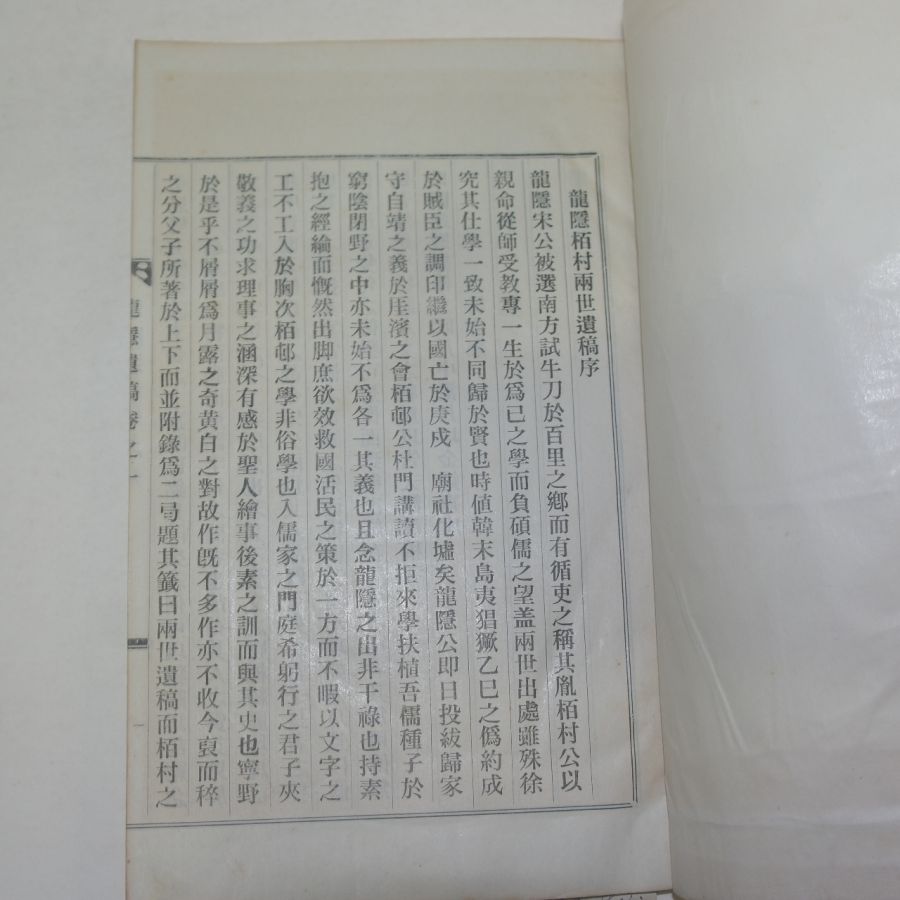 龍隱栢村兩世遺稿序
龍隱宋公被選南方試牛刀於百里之鄕而有循吏之稱其胤栢村公以
親命從師受敎專一生於爲已之學而負碩儒之望盖兩世出處雖殊徐
究其仕學一致未始不同歸於賢也時値韓末島夷猖獗乙巳之僞約成
於賊臣之調印繼以國亡於庚戌 廟社化墟矣龍隱公即日投紱歸家
守自靖之義於厓濱之會栢邨公杜門講讀不拒來學扶植吾儒種子於
窮陰閉野之中亦未始不爲各一其義也且念龍隱之出非干祿也持素
抱之經綸而慨然出脚庶欲效救國活民之策於一方而不暇以文字之
工不工入於胸次栢邨之學非俗學也入儒家之門庭希躬行之君子夾
敬義之功求理事之涵深有感於聖人繪事後素之訓而與其史也寧野
於是乎不屑屑爲月露之奇黃白之對故作旣不多作亦不收今裒而稡
之分父子所著於上下而並附錄爲二弓題其籤曰兩世遺稿而栢村之
龍隱遺稿 卷之一
一